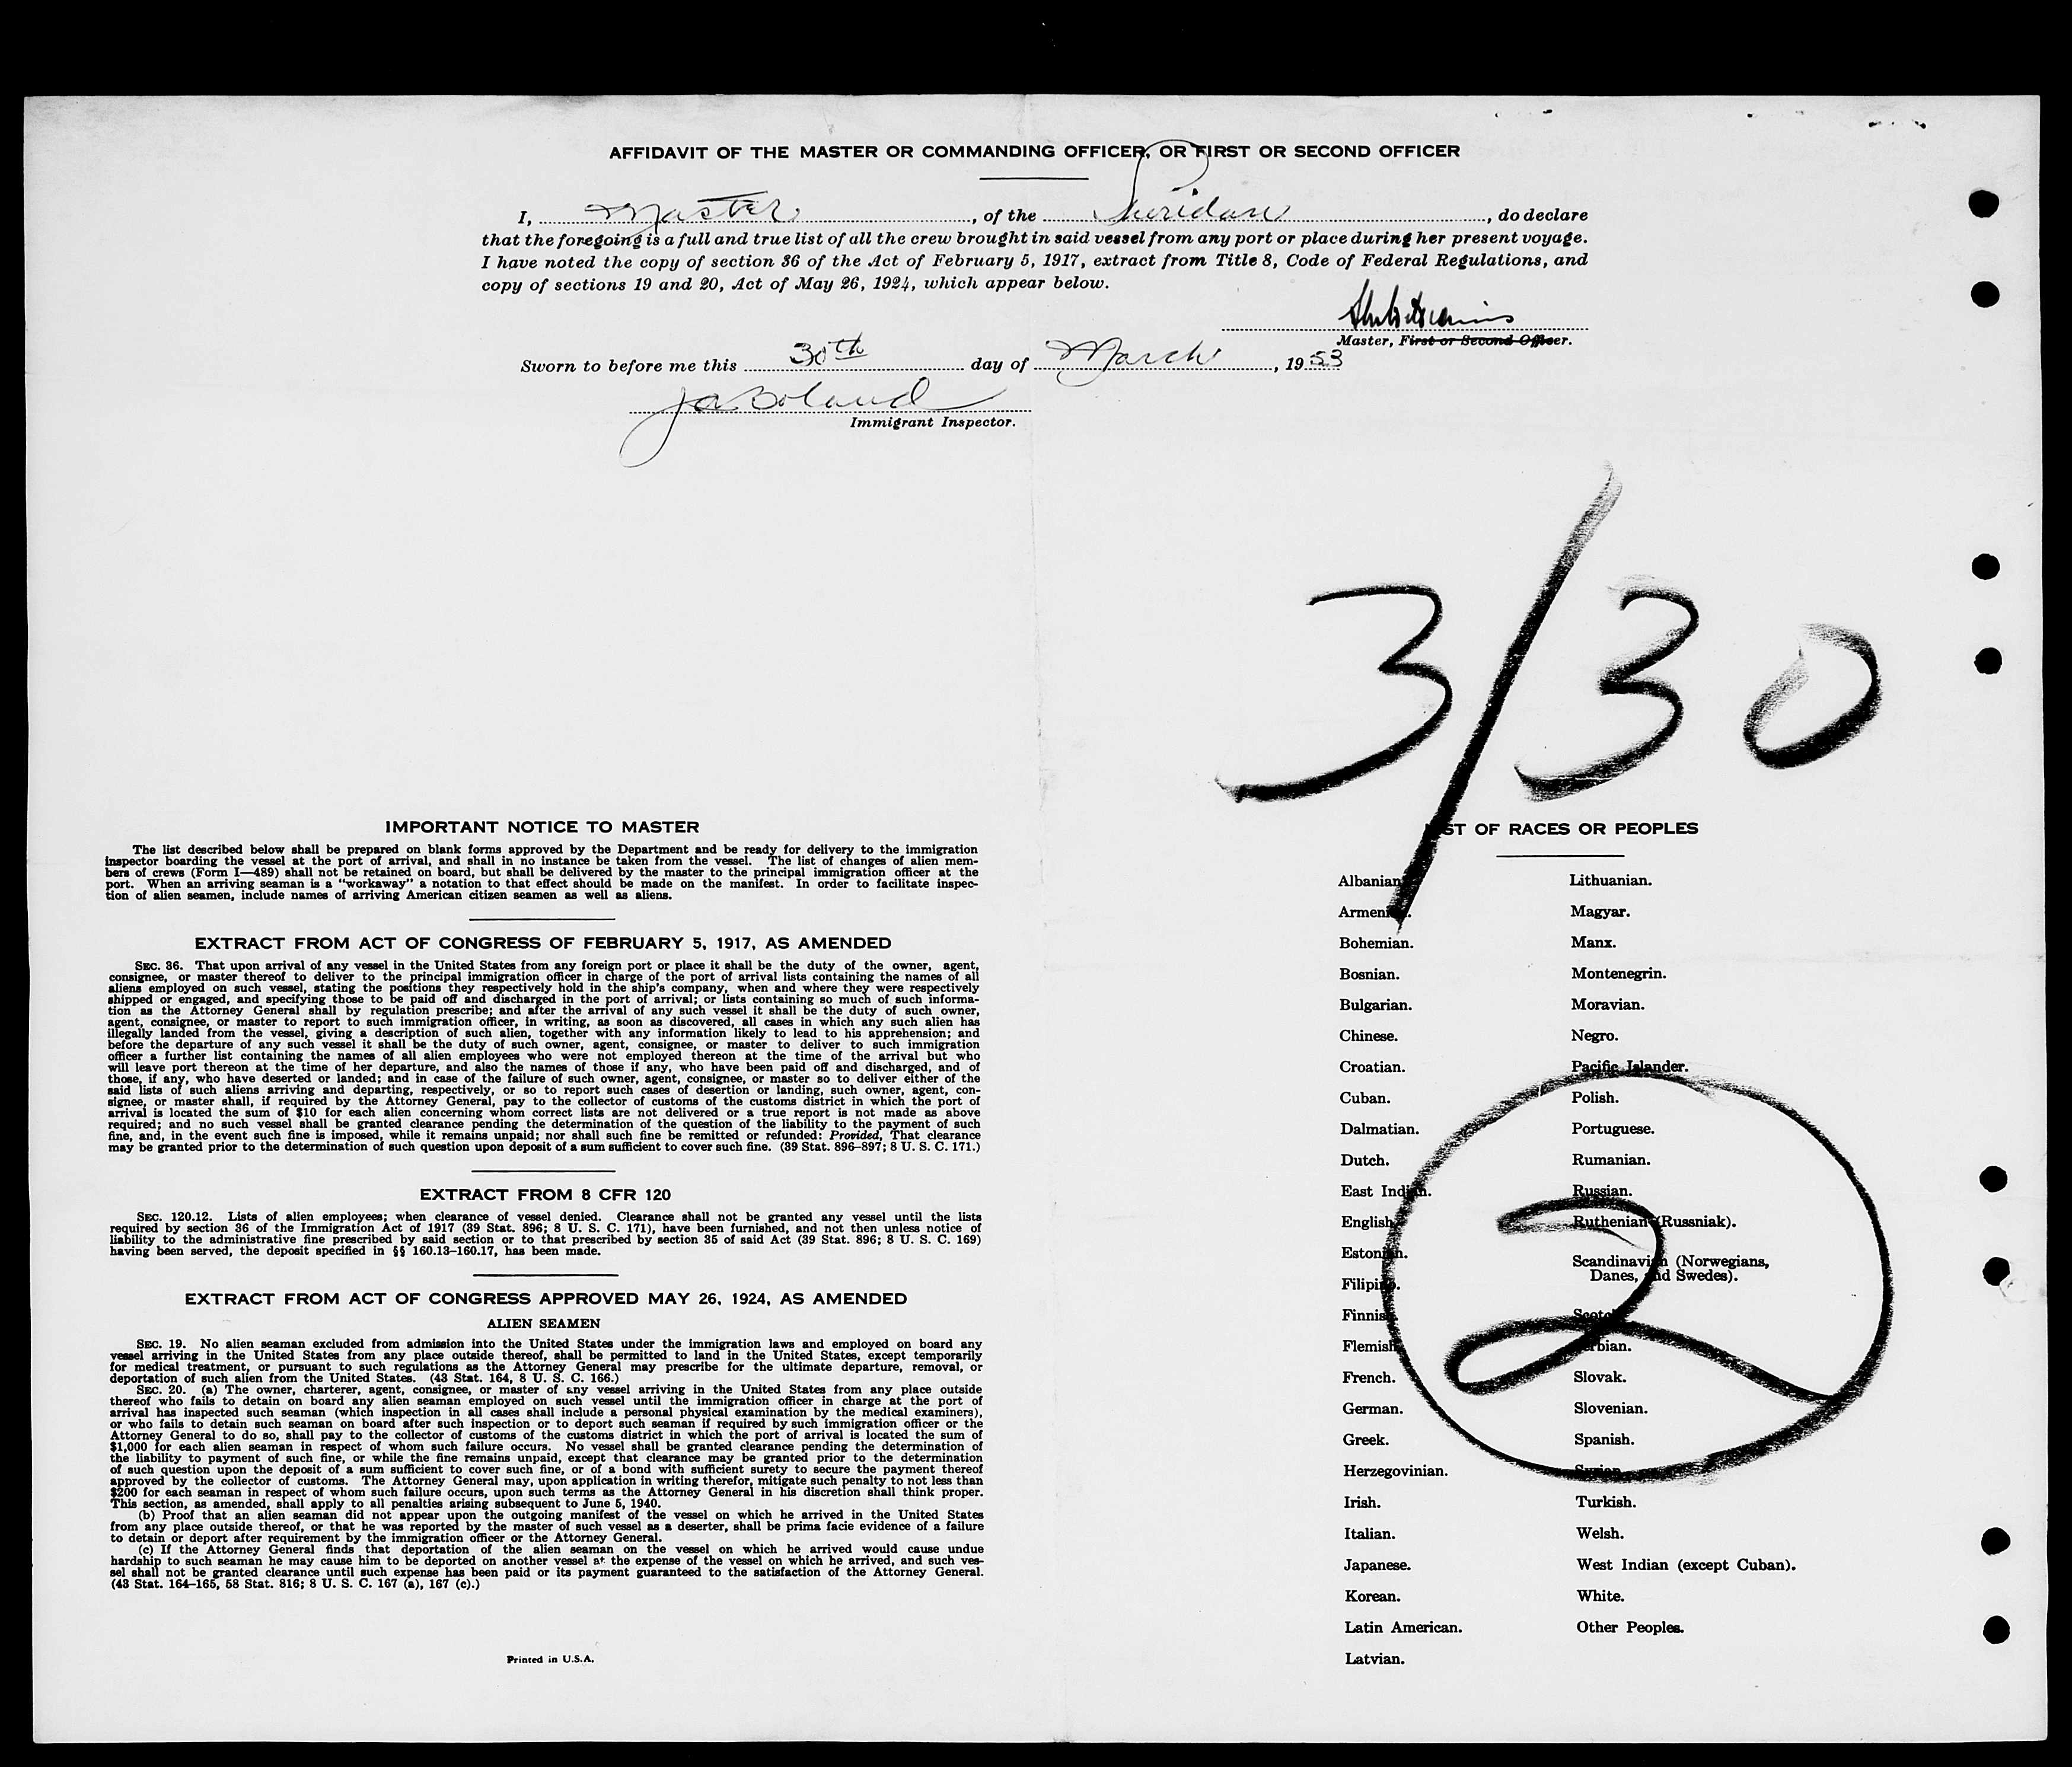 AFFIDAVIT OF THE MASTER OR COMMANDING OFFICER, OR FIRST OR SECOND OFFICER
I, Master, of the Sheridan, do declare
that the foregoing is a full and true list of all the crew brought in said vessel from any port or place during her present voyage.
I have noted the copy of section 36 of the Act of February 5, 1917, extract from Title 8, Code of Federal Regulations, and
copy of sections 19 and 20, Act of May 26, 1924, which appear below.
Master, First or Second Officer.
Sworn to before me this 30th day of March, 1953
Ja Boland
Immigrant Inspector.
3/30
IMPORTANT NOTICE TO MASTER
The list described below shall be prepared on blank forms approved by the Department and be ready for delivery to the immigration
inspector boarding the vessel at the port of arrival, and shall in no instance be taken from the vessel. The list of changes of alien mem-
bers of crews (Form I—489) shall not be retained on board, but shall be delivered by the master to the principal immigration officer at the
port. When an arriving seaman is a "workaway" a notation to that effect should be made on the manifest. In order to facilitate inspec-
tion of alien seamen, include names of arriving American citizen seamen as well as aliens.
EXTRACT FROM ACT OF CONGRESS OF FEBRUARY 5, 1917, AS AMENDED
SEC. 36. That upon arrival of any vessel in the United States from any foreign port or place it shall be the duty of the owner, agent,
consignee, or master thereof to deliver to the principal immigration officer in charge of the port of arrival lists containing the names of all
aliens employed on such vessel, stating the positions they respectively hold in the ship's company, when and where they were respectively
shipped or engaged, and specifying those to be paid off and discharged in the port of arrival; or lists containing so much of such informa-
tion as the Attorney General shall by regulation prescribe; and after the arrival of any such vessel it shall be the duty of such owner,
agent, consignee, or master to report to such immigration officer, in writing, as soon as discovered, all cases in which any such alien has
illegally landed from the vessel, giving a description of such alien, together with any information likely to lead to his apprehension; and
before the departure of any such vessel it shall be the duty of such owner, agent, consignee, or master to deliver to such immigration
officer a further list containing the names of all alien employees who were not employed thereon at the time of the arrival but who
will leave port thereon at the time of her departure, and also the names of those if any, who have been paid off and discharged, and of
those, if any, who have deserted or landed; and in case of the failure of such owner, agent, consignee, or master so to deliver either of the
said lists of such aliens arriving and departing, respectively, or so to report such cases of desertion or landing, such owner, agent, con-
signee, or master shall, if required by the Attorney General, pay to the collector of customs of the customs district in which the port of
arrival is located the sum of $10 for each alien concerning whom correct lists are not delivered or a true report is not made as above
required; and no such vessel shall be granted clearance pending the determination of the question of the liability to the payment of such
fine, and, in the event such fine is imposed, while it remains unpaid; nor shall such fine be remitted or refunded: Provided, That clearance
may be granted prior to the determination of such question upon deposit of a sum sufficient to cover such fine. (39 Stat. 896–897; 8 U. S. C. 171.)
EXTRACT FROM 8 CFR 120
SEC. 120.12. Lists of alien employees; when clearance of vessel denied. Clearance shall not be granted any vessel until the lists
required by section 36 of the Immigration Act of 1917 (39 Stat. 896; 8 U. S. C. 171), have been furnished, and not then unless notice of
liability to the administrative fine prescribed by said section or to that prescribed by section 35 of said Act (39 Stat. 896; 8 U. S. C. 169)
having been served, the deposit specified in §§ 160.13–160.17, has been made.
EXTRACT FROM ACT OF CONGRESS APPROVED MAY 26, 1924, AS AMENDED
ALIEN SEAMEN
SEC. 19. No alien seaman excluded from admission into the United States under the immigration laws and employed on board any
vessel arriving in the United States from any place outside thereof, shall be permitted to land in the United States, except temporarily
for medical treatment, or pursuant to such regulations as the Attorney General may prescribe for the ultimate departure, removal, or
deportation of such alien from the United States. (43 Stat. 164, 8 U. S. C. 166.)
SEC. 20. (a) The owner, charterer, agent, consignee, or master of any vessel arriving in the United States from any place outside
thereof who fails to detain on board any alien seaman employed on such vessel until the immigration officer in charge at the port of
arrival has inspected such seaman (which inspection in all cases shall include a personal physical examination by the medical examiners),
or who fails to detain such seaman on board after such inspection or to deport such seaman if required by such immigration officer or the
Attorney General to do so, shall pay to the collector of customs of the customs district in which the port of arrival is located the sum of
$1,000 for each alien seaman in respect of whom such failure occurs. No vessel shall be granted clearance pending the determination of
the liability to payment of such fine, or while the fine remains unpaid, except that clearance may be granted prior to the determination
of such question upon the deposit of a sum sufficient to cover such fine, or of a bond with sufficient surety to secure the payment thereof
approved by the collector of customs. The Attorney General may, upon application in writing therefor, mitigate such penalty to not less than
$200 for each seaman in respect of whom such failure occurs, upon such terms as the Attorney General in his discretion shall think proper.
This section, as amended, shall apply to all penalties arising subsequent to June 5, 1940.
(b) Proof that an alien seaman did not appear upon the outgoing manifest of the vessel on which he arrived in the United States
from any place outside thereof, or that he was reported by the master of such vessel as a deserter, shall be prima facie evidence of a failure
to detain or deport after requirement by the immigration officer or the Attorney General.
(c) If the Attorney General finds that deportation of the alien seaman on the vessel on which he arrived would cause undue
hardship to such seaman he may cause him to be deported on another vessel at the expense of the vessel on which he arrived, and such ves-
sel shall not be granted clearance until such expense has been paid or its payment guaranteed to the satisfaction of the Attorney General.
(43 Stat. 164–165, 58 Stat. 816; 8 U. S. C. 167 (a), 167 (c).)
Printed in U.S.A.
LIST OF RACES OR PEOPLES
Albanian.
Armenian.
Bohemian.
Bosnian.
Bulgarian.
Chinese.
Croatian.
Cuban.
Dalmatian.
Dutch.
East Indian.
English.
Estonian.
Filipino.
Finnish.
Flemish.
French.
German.
Greek.
Herzegovinian.
Irish.
Italian.
Japanese.
Korean.
Latin American.
Latvian.
Lithuanian.
Magyar.
Manx.
Montenegrin.
Moravian.
Negro.
Pacific Islander.
Polish.
Portuguese.
Rumanian.
Russian.
Ruthenian (Russniak).
Scandinavian (Norwegians,
Danes, and Swedes).
Scotch.
Serbian.
Slovak.
Slovenian.
Spanish.
Syrian.
Turkish.
Welsh.
West Indian (except Cuban).
White.
Other Peoples.
2